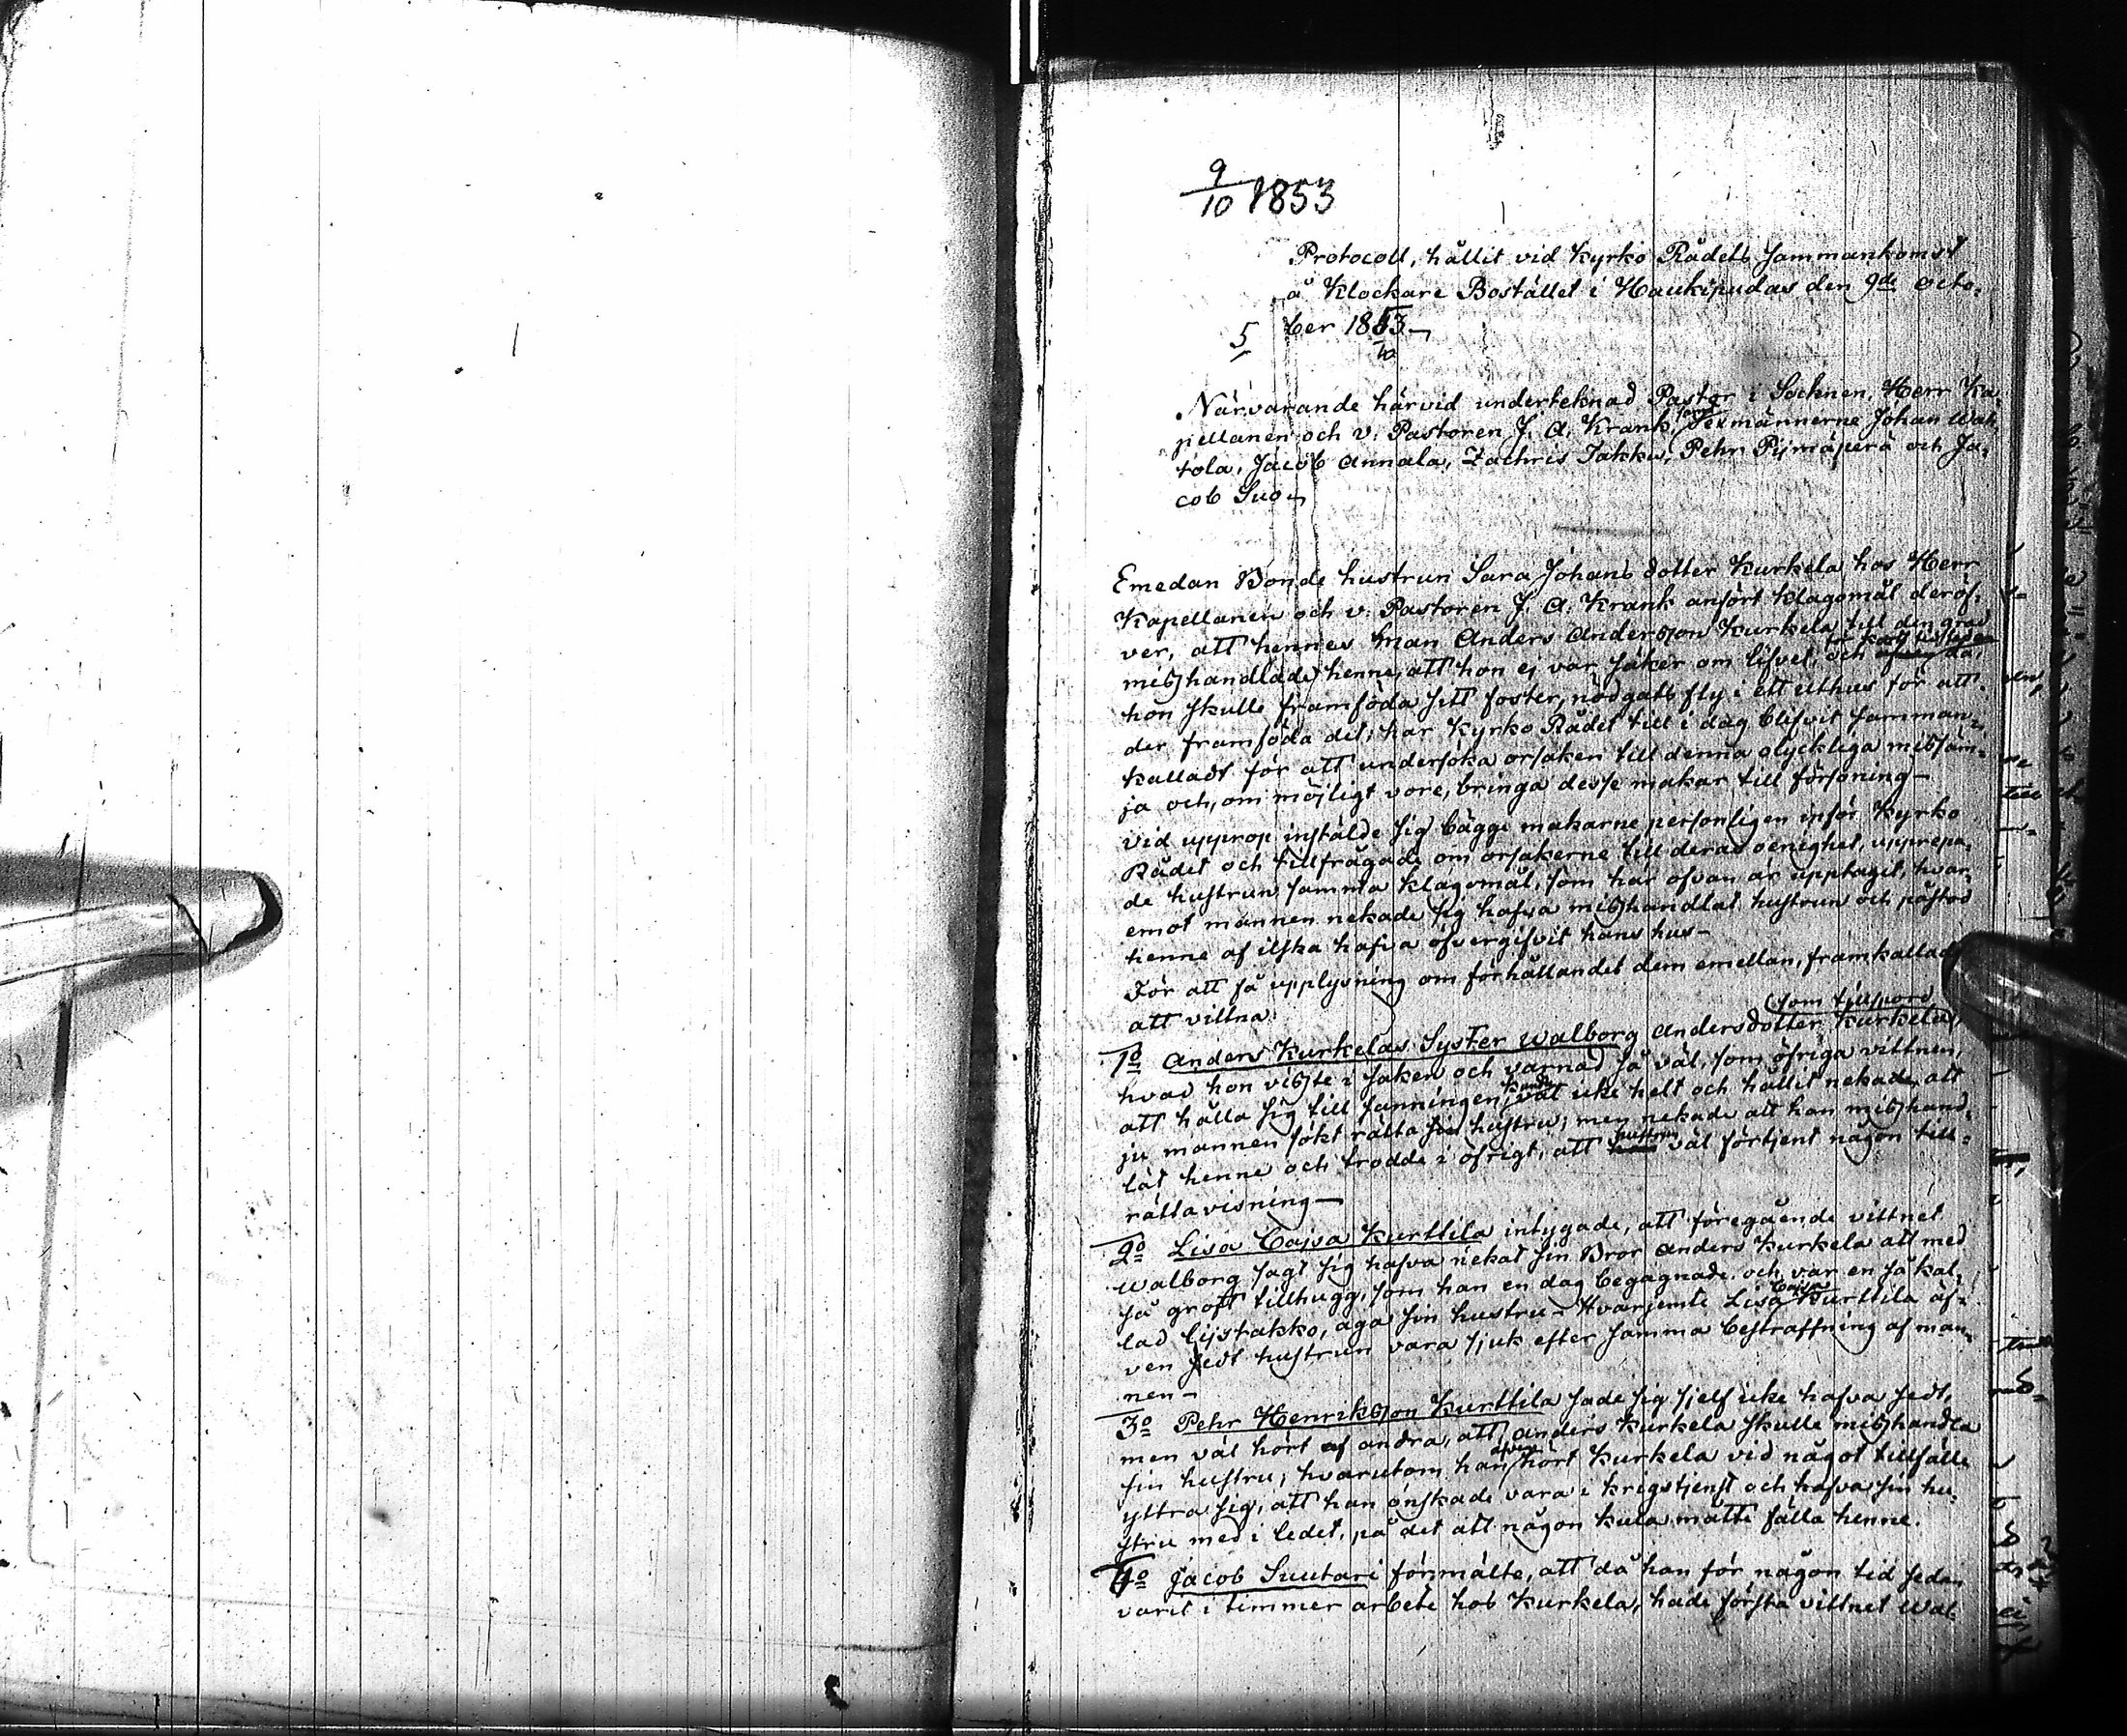 9/10 1853
Protocoll, hållit vid Kyrko Rådets sammankomst
å Klockare Bostället i Haukipudas den 9de Octo-
5 ber 1853
10
Närvarande härvid underteknad Pastor i Socknen, Herr Ka-
pellanen och v. Pastoren J. A. Krank, samt Sexmännerne Johan Wah-
tola, Jacob Annala, Zachris Takku, Pehr Pijmäperä och Ja-
cob Suo
Emedan Bonde hustrun Sara Johans dotter Kurkela hos Herr
Kapellanen och v. Pastoren J. A. Krank anfört klagomål deröf-
ver, att hennes man Anders Andersson Kurkela till den grad
misshandlade henne, att hon ej var säker om lifvet, och då
hon skulle framföda sitt foster, nödgats fly i ett uthus för att
der framföda det; har Kyrko Rådet till i dag blifvit samman-
kalladt för att undersöka orsaken till denna olyckliga missäm-
ja och, om möjligt vore, bringa desse makar till försoning-
vid upprop instälde sig bägge makarne personligen inför Kyrko
Rådet och tillfrågade om orsakerne till deras oenighet, upprepa-
de hustrun samma klagomål, som här ofvan är upptaget, hvar-
emot mannen nekade sig hafva misshandlat hustrun och påstod
henne af ilska hafva öfvergifvit hans hus-
För att få upplysning om förhållandet dem emellan, framkallad
att vittna
1o Anders Kurkelas Syster Walborg Andersdotter Kurkela, som tillspord,
hvad hon visste i saken och varnad så väl, som öfriga vittnen,
att hålla sig till sanningen, kunde väl icke helt och hållit nekade, att
ju mannen sökt rätta sin hustru; men nekade att han misshand-
lat henne och trodde i öfrigt, att hustrun väl förtjent någon till-
rättavisning-
2o Lisa Cajsa Kurttila intygade, att föregående vittnet
Walborg sagt sig hafva nekat sin Bror Anders Kurkela att med
så groft tillhugg, som han en dag begagnade och var en så kal-
lad lijstakko, aga sin hustru- Hvarjemte Lisa Cajsa Kurttila äf-
ven sedt hustrun vara sjuk efter samma bestraffning af man-
nen-
3o Pehr Henriksson Kurttila sade sig sjelf icke hafva sedt,
men väl hört af andra, att Anders Kurkela skulle misshandla
sin hustru; hvarutom han äfven hört Kurkela vid något tillfälle
yttra sig, att han önskade vara i krigstjenst och hafva sin hu-
stru med i ledet, på det att någon kula måtte fälla henne.
4o Jacob Suutari förmälte, att då han för någon tid sedan
varit i timmer arbete hos Kurkela, hade första vittnet Wal-